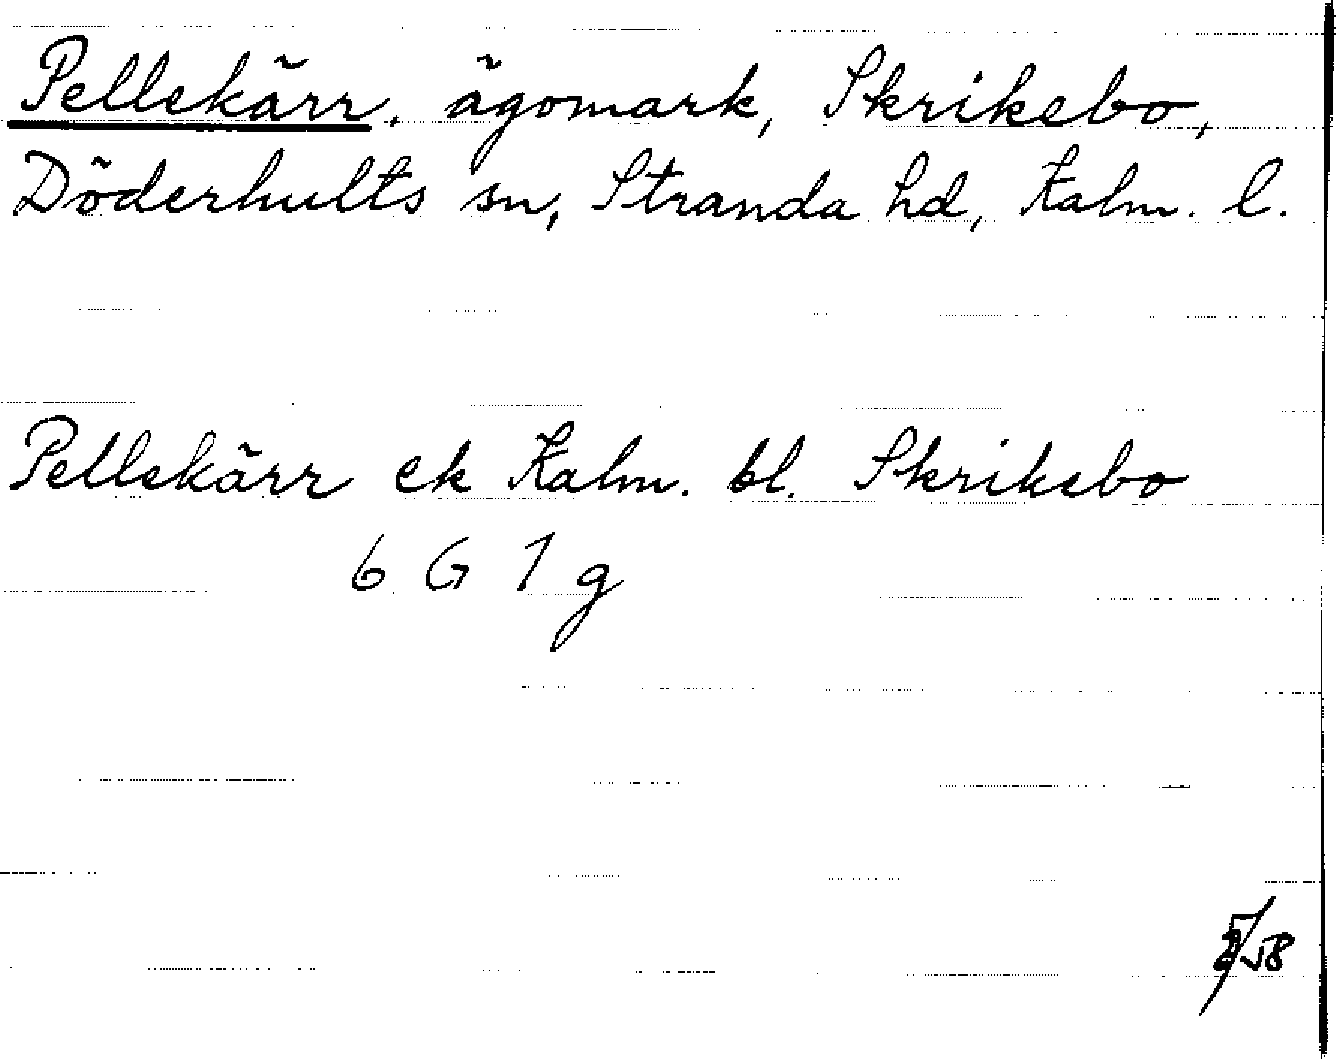 Pellekärr, ägomark, Skrikebo,
Döderhults sn, Stranda hd, Kalm. l.
Pellekärr ek Kalm. bl. Skrikebo
6 G 1 g